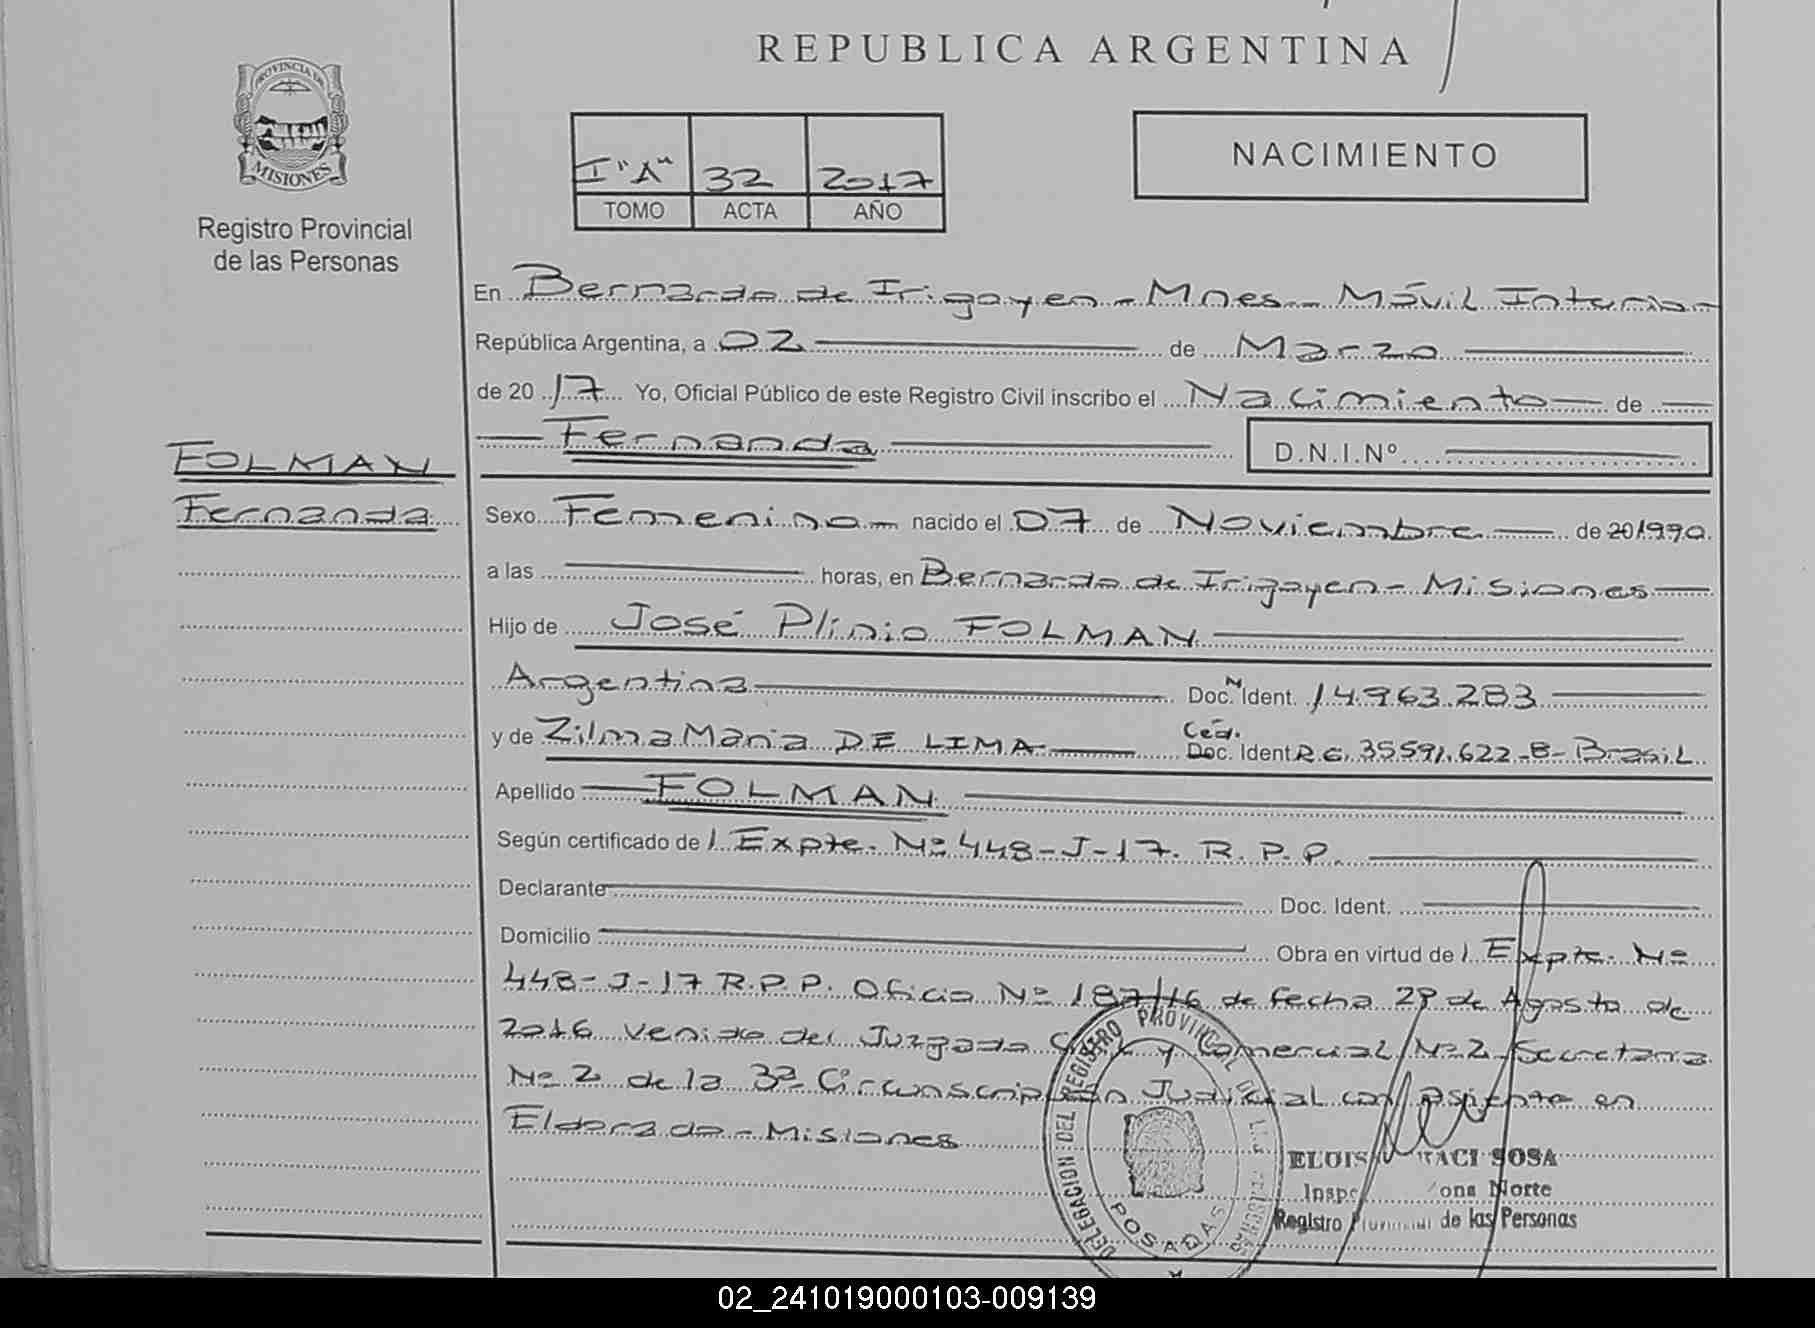 REPUBLICA ARGENTINA
PROVINCIA DE
MISIONES
Registro Provincial
de las Personas
I "A" 32 2017
TOMO ACTA AÑO
NACIMIENTO
En Bernardo de Irigoyen - Mnes - Móvil Interior
República Argentina, a 02 de Marzo
de 20 17 Yo, Oficial Público de este Registro Civil inscribo el Nacimiento de
Fernanda D.N.I.Nº
FOLMAN
Fernanda
Sexo Femenino nacido el 07 de Noviembre de 20 1990.
a las horas, en Bernardo de Irigoyen - Misiones
Hijo de José Plinio FOLMAN
Argentina Doc. N Ident. 14.963.283
y de Zilma Maria DE LIMA Céd. Doc. Ident R.G. 35591.622-8- Brasil
Apellido FOLMAN
Según certificado de / Expte. Nº 448-J-17. R.P.P.
Declarante Doc. Ident.
Domicilio Obra en virtud de / Expte. Nº
448-J-17 R.P.P. Oficio Nº 187/16 de fecha 29 de Agosto de
2016 venido del Juzgado Civil y Comercial Nº 2 Secretaria
Nº 2 de la 3ª Circunscripción Judicial con asiento en
Eldorado - Misiones
DELEGACION DEL REGISTRO PROVINCIAL DE LAS
POSADAS
SOSA
Zona Norte
Registro Provincial de las Personas
02_241019000103-009139